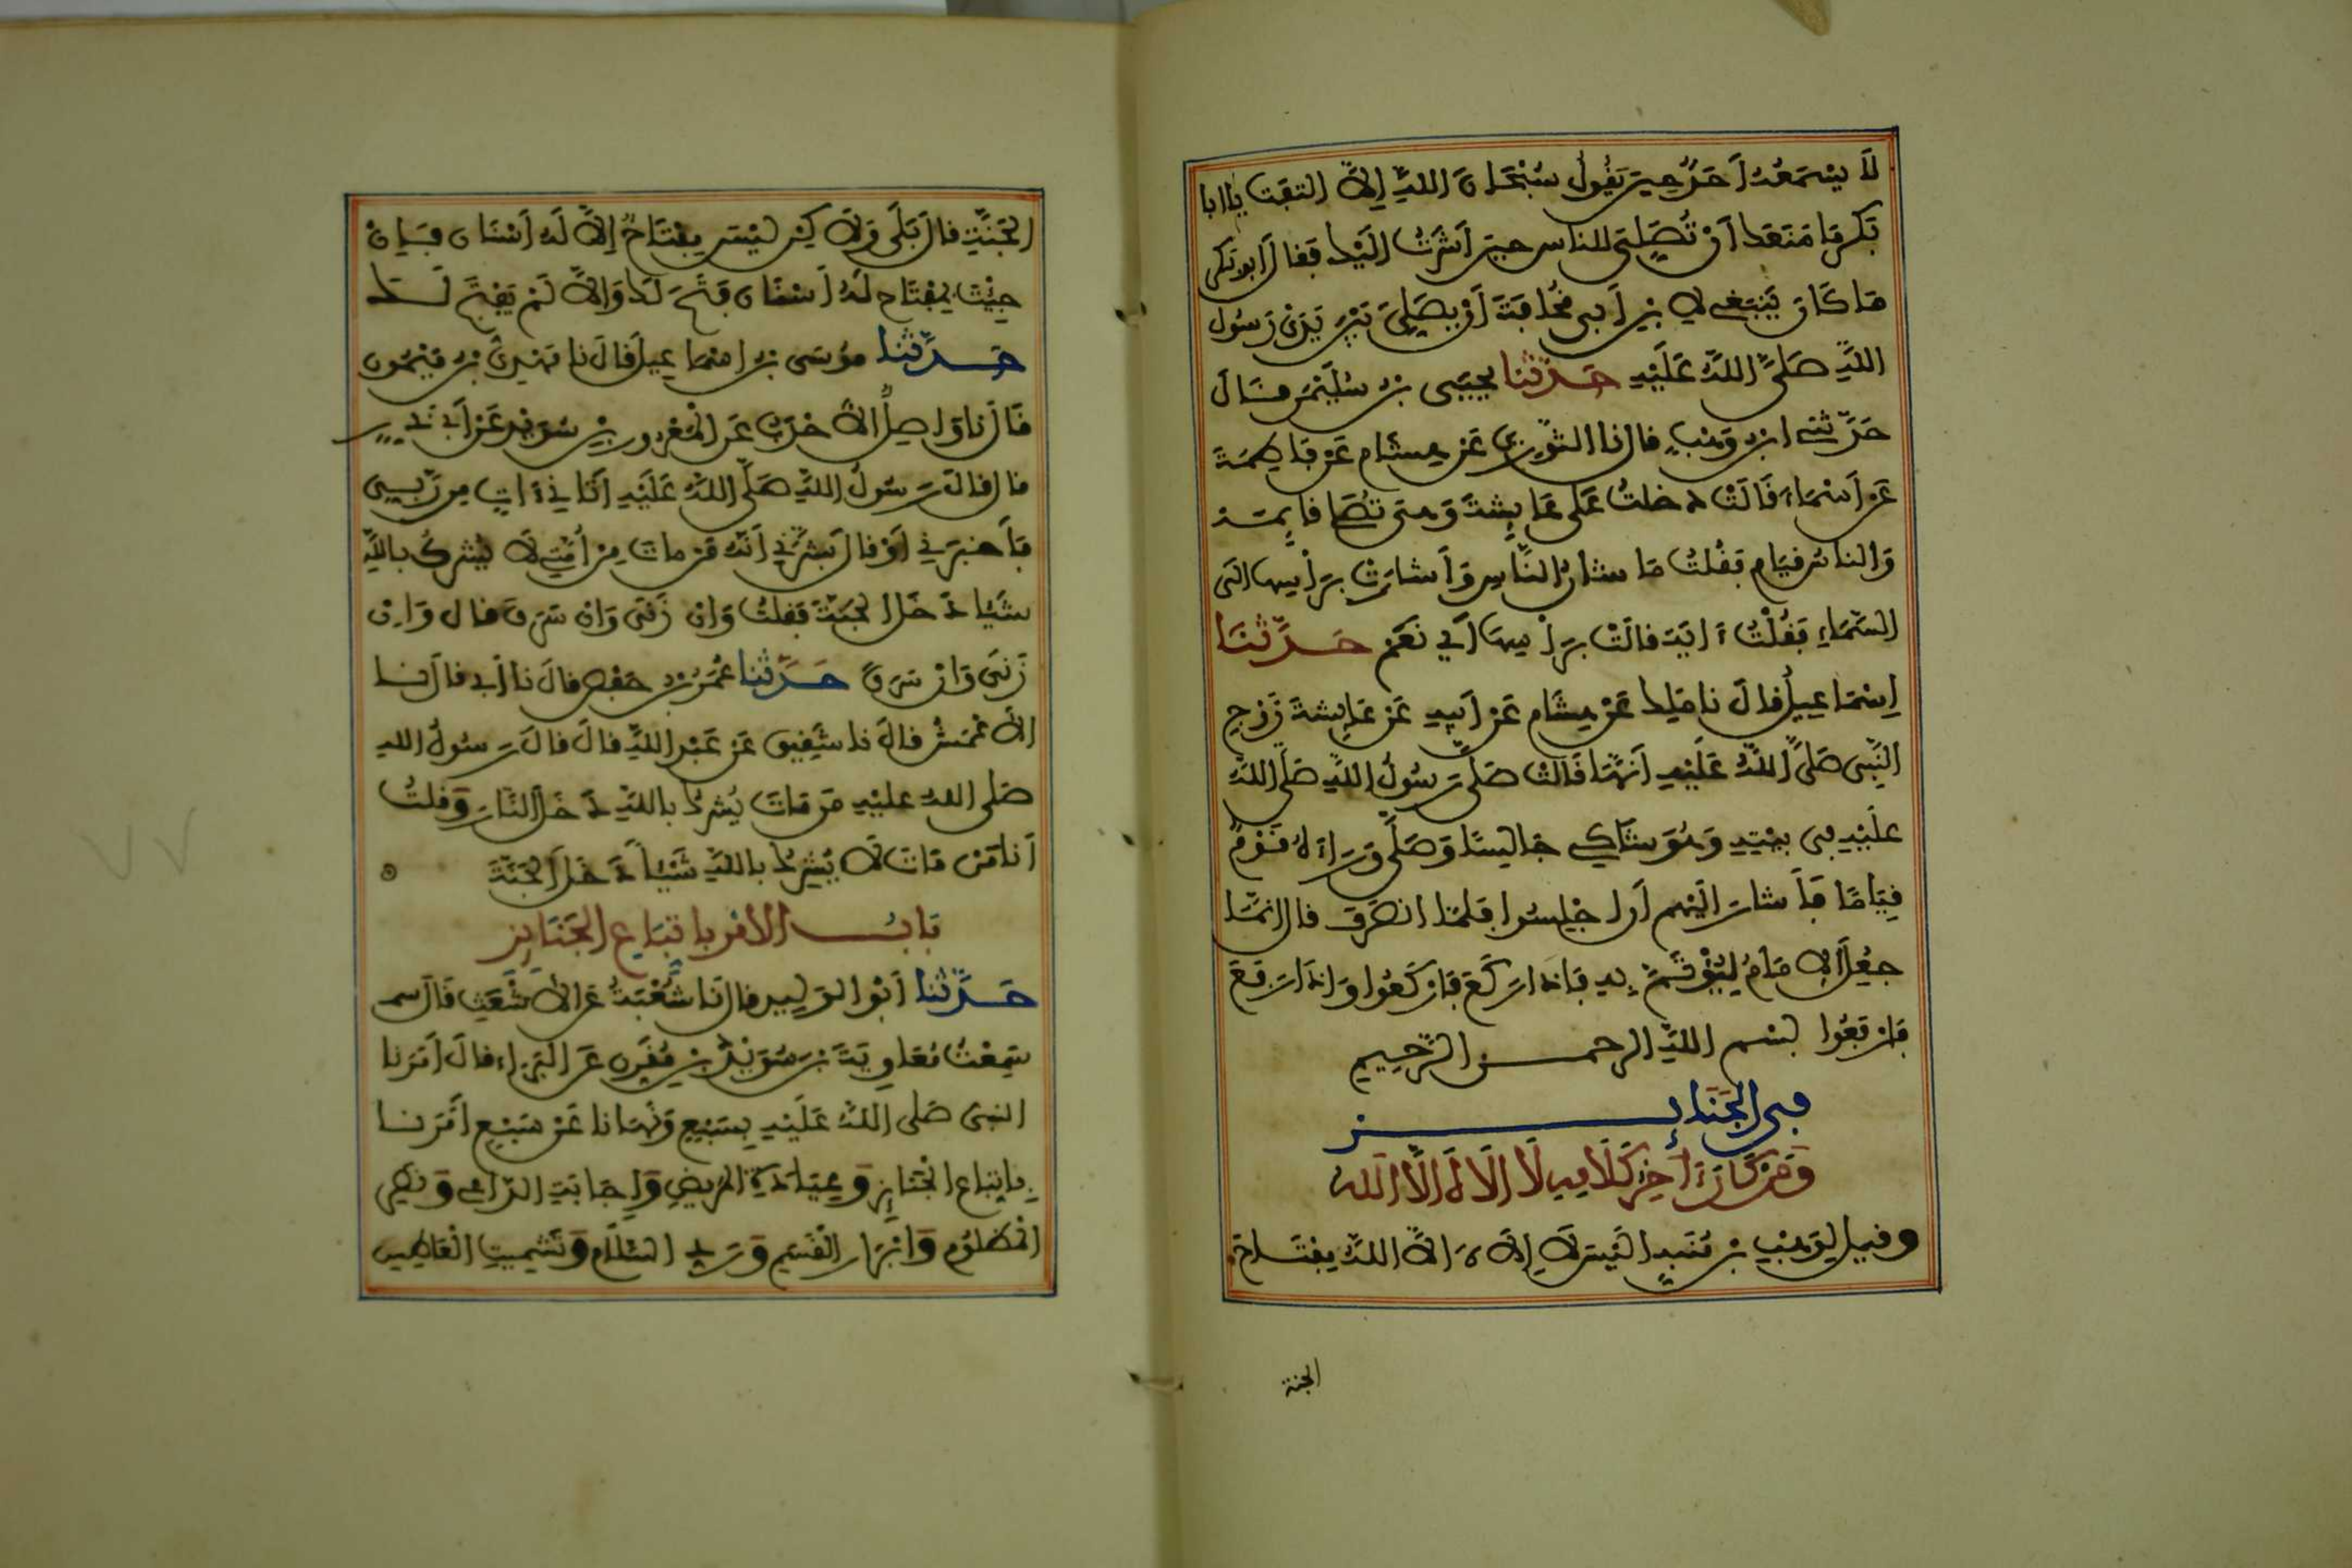 لَا يَسْمَعُهُ أَحَدٌ حِينَ يَقُولُ سُبْحَانَ اللَّهِ إِلَّا التفت يا ابا
بَكْرٍ مَا مَنَعَكَ أَنْ تُصَلِّيَ للناس حين أَشَرْتُ إِلَيْكَ فَقَالَ أبو بَكْرٍ
مَا كَانَ يَنْبَغِي لِابْنِ أَبِي قُحَافَةَ أَنْ يُصَلِّيَ بَيْنَ يَدَيْ رَسُولِ
اللَّهِ صَلَّى اللَّهُ عَلَيْهِ حَدَّثَنَا يَحْيَى بن سُلَيْمَن قَالَ
حَدَّثَنِي ابن وَهْبٍ قال نا الثَّوْرِي عَنْ هِشَامٍ عَنْ فَاطِمَةَ
عَنْ أَسْمَاءَ قَالَتْ دخلتُ عَلَى عَايِشَةَ وَهي تُصَلي قايمة
وَالناسُ قيام فَقُلْتُ مَا شَانُ النَّاسِ وَأَشَارَتْ بِرَأْسِهَا إلى
السَّمَاءِ فَقُلْتُ ءَايَةٌ قالَتْ بِرَأْسِهَا أَيْ نَعَمْ حَدَّثَنَا
إِسْمَاعِيلُ قَالَ نا مَلِك عَنْ هِشَام عَنْ أَبِيهِ عَنْ عَايِشَةَ زَوْجِ
النَّبِي صَلَّى اللَّهُ عَلَيْهِ أَنَّهَا قَالَتْ صَلَّى رَسُولُ اللَّهِ صَلَّى اللَّهُ
عَلَيْهِ فِي بَيْتِهِ وَهُوَ شَاكٍ جَالِسًا وَصَلَّى وَرَاءَهُ قَوْمٌ
قِيَامًا فَأَشَارَ إِلَيْهِم أن اجْلِسُوا فَلَمَّا انصَرَفَ قال إنمَّا
جُعِلَ الإمَامُ لِيُؤْتَمَّ بِهِ فَإِذَا رَكَعَ فَارْكَعُوا وَإِذَا رَفَعَ
فَارْفَعُوا بِسْم اللَّهِ الرحمن الرَّحِيمِ
في الجَنَايز
وَمَنْ كَانَ ءَاخِرَ كَلَامِهِ لَا إِلَاهَ إِلَّا اللَّه
وقيل لِوَهْبِ بن مُنَبِّهٍ أَلَيْسَ لَا إِلَهَ إِلَّا اللَّهُ مِفْتَاحَ
الجنة
الْجَنَّةِ قالَ بَلَى وَلَاكِنْ لَيْسَ مِفْتَاحٌ إِلَّا لَهُ أَسْنَان فَإِنْ
جِيْتَ بِمِفْتَاح لَهُ أَسْنَان فَتَحَ لَكَ وَإِلَّا لَمْ يَفْتَحْ لَكَ
حَدَّثَنَا مُوسَى بن إسْمَاعِيلَ قَالَ نا مَهْدِيُّ بن مَيْمُون
قَالَ نا وَاصِلٌ الأَحْدَبُ عَنِ المَعْرُورِ بنِ سُوَيْدٍ عَنْ أَبِي ذَر
قال قَالَ رَسُولُ اللَّهِ صَلَّى اللَّهُ عَلَيْهِ أَتَانِي ءَاتٍ مِن رَّبِّي
فَأَخْبَرَنِي أَوْ قالَ بَشَّرَنِي أَنَّهُ مَنْ مات مِنْ أُمَّتِي لَا يُشْرِكُ بِاللَّهِ
شَيْا دَخَلَ الجَنَّةَ فَقلتُ وَإِن زَنَى وَإِن سَرَقَ قال وَإِن
زَنَى وَإِنْ سَرَقَ حَدَّثَنَا عُمَرُ بن حَفْصٍ قَالَ نا أَبِي قالَ نا
الأَعْمَشُ قَالَ نا شَقِيق عَنْ عَبْدِ اللَّهِ قَالَ قَالَ رَسُولُ الله
صَلَى اللهُ عليْهِ مَن مَاتَ يُشْرِكُ بِاللَّهِ دَخَلَ النَّارَ وَقلتُ
أَنَا مَنْ مَاتَ لَا يُشْرِكُ بِاللَّهِ شَيْئاً دَخَلَ الجَنَّةَ
بَابُ الأمْرِ باتِّبَاعِ الجَنَايِز
حَدَّثَنَا أَبُو الوَلِيدِ قال نَا شُعْبَةُ عَنِ الأَشْعَثِ قَالَ سمـ
سَمِعْتُ مُعَاوِيَةَ بْنَ سُوَيْدِ بْنِ مُقَرِّنٍ عَنِ البَرَاءِ قَالَ أَمَرَنَا
النبي صَلى اللهُ عَلَيْهِ بِسَبْعٍ وَنَهَانا عَنْ سَبْعٍ أَمَرَنَا
بِاتِّبَاعِ الْجَنَايِزِ وَعِيَادَةِ المَرِيضِ وَإِجَابَةِ الدَّاعِي وَنَصْرِ
الْمَظْلُوم وَإِبْرَارِ القَسَمِ وَرَدِّ السَّلَام وَتَشْمِيتِ الْعَاطِسِ